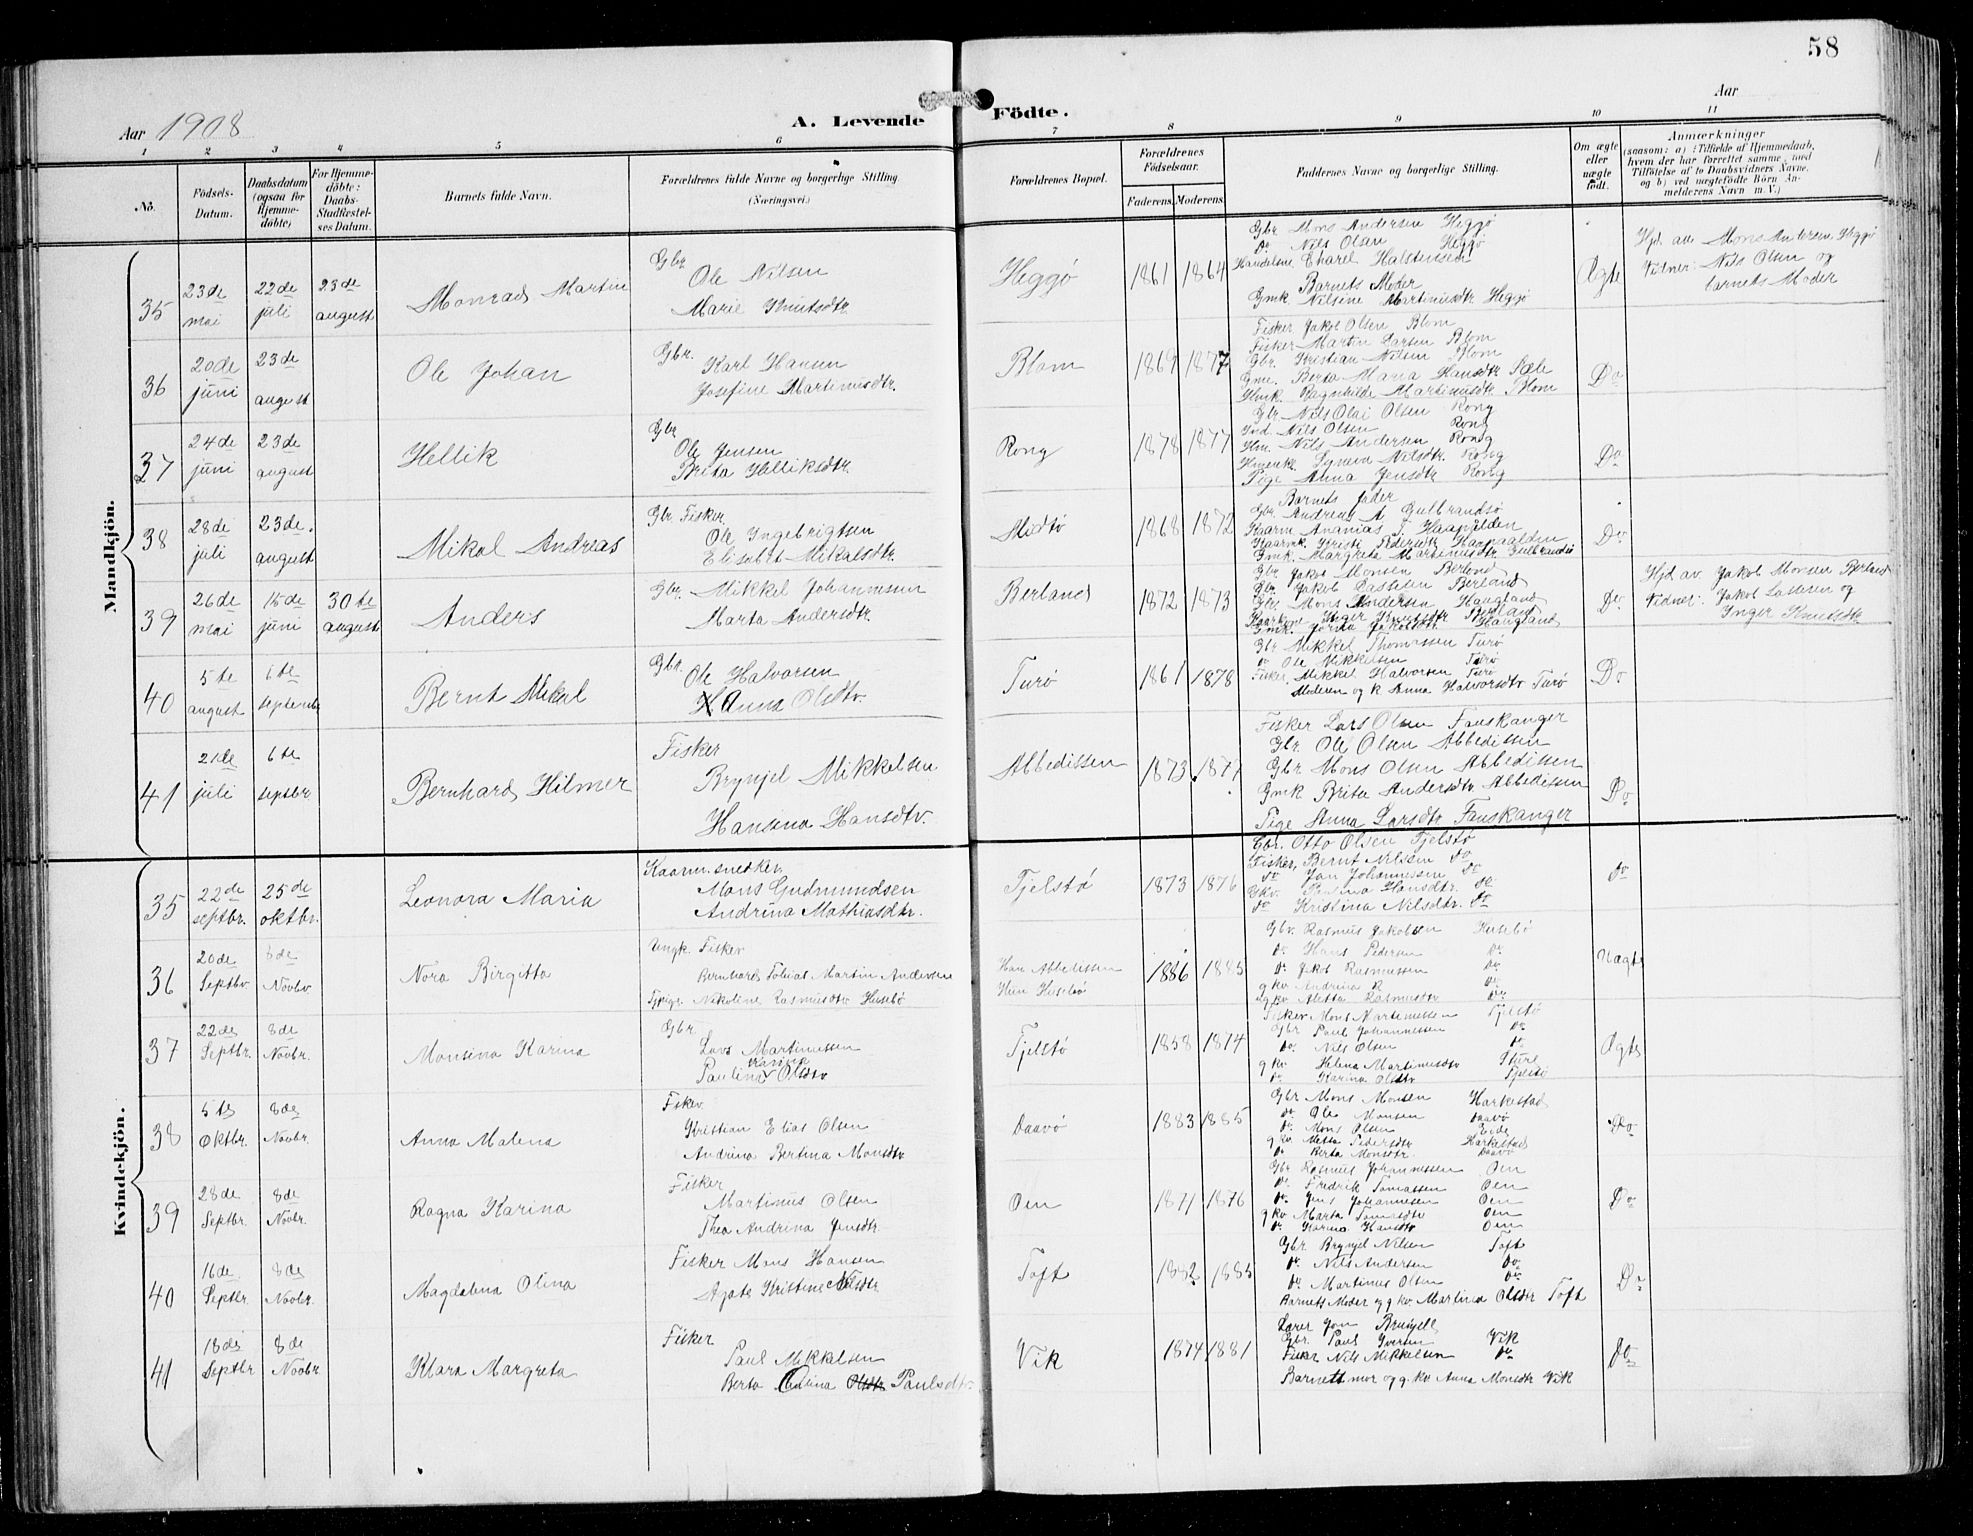 58
Aar 1908
A. Levende Födte.
Aar
1 2 3 4 5 6 7 8 9 10 11
No.
Födsels-Datum.
Daabsdatum (ogsaa for Hjemme-döbte)
For Hjemme-döbte: Daabs-Stadfæstel-ses Datum.
Barnets fulde Navn.
Forældrenes fulde Navne og borgerlige Stilling (Næringsvei.)
Forældrenes Bopæl.
Forældrenes Födselsaar.
Faderens. Moderens.
Faddernes Navne og borgerlige Stilling.
Om ægte eller uægte födt.
Anmærkninger (saasom: a) i Tilfælde af Hjemmedaab, hvem der har forrettet samme, med Tilföielse af to Daabsvidners Navne, og b) ved uægtefödte Börn An-melderens Navn m. V.)
Mandkjön.
35
23de mai
22de juli
23de august
Monrad Martin
Gbr.
Ole Nilsen
Marie Knutsdtr.
Heggö
1861 1864
Gbr Mons Andersen Heggö
Do Nils Olsen Heggö
Halstensen
Barnets Moder
Gmk Nilsine Martinusdtr Heggö
Ægte
Hjd. av Mons Andersen Heggö
Vidner: Nils Olsen og
barnets Moder
36
20de juni
23de august
Ole Johan
Gbr.
Karl Hansen
Josefine Martinusdtr.
Blom
1869 1877
Fisker Jakob Olsen Blom
Fisker Martin Larsen Blom
Gbr. Kristian Nilsen Blom
Gmk. Berta Maria Hansdtr Sæle
Ragnhilde Martinusdtr Blom
Do
37
24de juni
23de august
Hellik
Gbr
Ole Jensen
Brita Helliksdtr.
Rong
1878 1877
Gbr. Nils Olai Olsen Rong
Ind. Nils Olsen Rong
Hm. Nils Andersen Rong
Nilsdtr. Rong
Pige Anna Jensdtr Rong
Do
38
28de juli
23de august
Mikal Andreas
Gbr Fisker
Ole Ingebrigtsen
Elisabet Mikalsdtr.
Midtö
1868 1872
Barnets fader
Gbr. Andreas A Gulbrandsö
Kaarm. Ananias J.
Kaarmk. Kristi Pedersdtr
Gmk. Margreta Martinusdtr Gulbrandsö
Do
39
26de mai
15de juni
30te august
Anders
Gbr. Mikkel Johannesen
Marta Andersdtr.
Berland
1872 1873
Gbr. Jakob Monsen Berland
Gbr. Jakob Lassesen Berland
Gbr. Mons Andersen Haugland
Inger Knutsdtr Berland
Gmk. Jakobsdtr. Haugland
Do
Hjd av. Jakob Monsen Berland
Vidner: Jakob Lassesen og
Inger Knutsdtr
40
5te august
6te septembr
Bernt Mikal
Gbr.
Ole Halvorsen
Anna Olsdtr.
Turö
1861 1878
Gbr Mikkel Thomassen Turö
Do Ole Mikkelsen Turö
Fisker Mikkel Halvorsen Turö
Moderen og K Anna Halvorsdtr Turö
Do
41
21de juli
6te septbr
Bernhard Hilmer
Fisker
Brynjel Mikkelsen
Hansina Hansdtr.
Abbedissen
1873 1877
Fisker Lars Olsen Fauskanger
Gbr. Ole Olsen Abbedissen
Gbr Mons Olsen Abbedissen
Gmk Brita Andersdtr Abbedissen
Pige Anna Larsdtr Fauskanger
Do
Kvindekjön.
35
22de septbr.
25de oktbr.
Leonora Maria
Kaarm. snedker.
Mons Gudmundsen
Andrina Mathiasdtr.
Tjelstö
1873 1876
Gbr. Otto Olsen Tjelstö
Fisker, Bernt Nilssen do
do Jan Johannessen do
Hansdtr. do
do Kristina Nilsdtr. do
do
36
20de Septbr
8de Novbr
Nora Birgitta
Ungk. Fisker
Bernhard Tobias Martin Andersen
Nikoline Rasmusdtr Husebö
Han Abbedissen
Hun Husebö
1886 1885
Gbr. Rasmus Jakobsen Husebö
do. Hans Pedersen do
do. Jakob Rasmussen do
g kv Andrina R do
g kv Aletta Rasmusdtr do
Uægte
37
22de Septbr.
8de Novbr.
Monsina Karina
Gbr.
Lars Martinussen
Paulina Karina Olsdtr
Tjelstö
1858 1874
Fisker Mons Martinussen Tjelstö
Gbr Paul Johannessen do
do. Nils Olsen do
g kv Helena Martinusdtr Sture
do. Karina Olsdtr Tjelstö
Ægte
38
5te Oktbr.
8de Novbr.
Anna Malena
Fisker
Kristian Elias Olsen
Andrina Bertina Monsdtr
Daavö
1883 1885
Gbr Mons Monsen Harkestad
do Ole Monsen Daavö
do. Mons Olsen Eide
g kv Metta Pedersdtr Harkestad
do Berta Monsdtr. Daavö
Do
39
28de Septbr.
8de Novbr.
Ragna Karina
Fisker
Martinus Olsen
Thea Andrina Jensdtr.
Oen
1871 1876
Gbr Rasmus Johannessen Oen
do Fredrik Tomassen Oen
do Jens Johannesen Oen
g kv Marta Tomasdtr Oen
do Karina Hansdtr Oen
Do
40
16de Septbr
8de Novbr.
Magdalena Olina
Fisker Mons Hansen
Agate Kristine Nilsdtr
Toft
1882 1885
Gbr. Brynjel Nilsen Toft
do Nils Andersen do
do Martinus Olsen do
Barnets Moder og g kv. Martina Olsdtr Toft
Do
41
18de Septbr
8de Novbr.
Klara Margreta
Fisker
Paul Mikkelsen
Berta Paulsdtr.
Vik
1874 1881
Lærer Jon Brunjell
Gbr. Paul Iversen Vik
Fisker Nils Mikkelsen do
Barnets mor og g. kv Anna Monsdtr Vik
Do